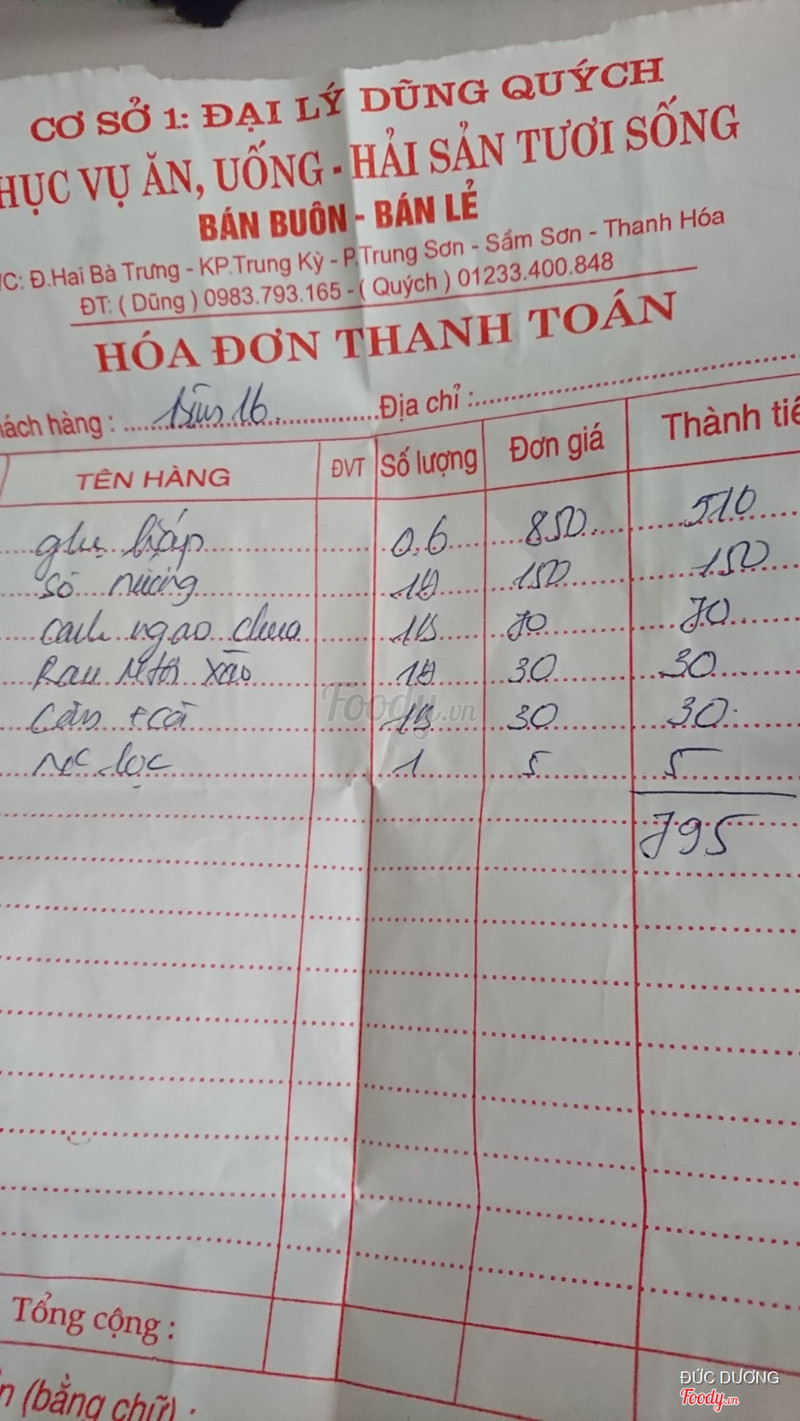 CƠ SỞ 1: ĐẠI LÝ DŨNG QUÝCH
HỤC VỤ ĂN, UỐNG - HẢI SẢN TƯƠI SỐNG
BÁN BUÔN - BÁN LẺ
/C: Đ.Hai Bà Trưng - KP.Trung Kỳ - P.Trung Sơn - Sầm Sơn - Thanh Hóa
ĐT: ( Dũng ) 0983.793.165 - ( Quých ) 01233.400.848
HÓA ĐƠN THANH TOÁN
hách hàng : 16 Địa chỉ :
TÊN HÀNG ĐVT Số lượng Đơn giá Thành tiề
ghẹ hấp 0,6 850 510
Sò nướng 1đ 150 150
canh ngao chua 1 70 70
Rau xào 1đ 30 30
cà 1 30 30
Nc lọc 1 5 5
795
Foody.vn
Tổng cộng :
n (bằng chữ) :
ĐỨC DƯƠNG
Foody.vn